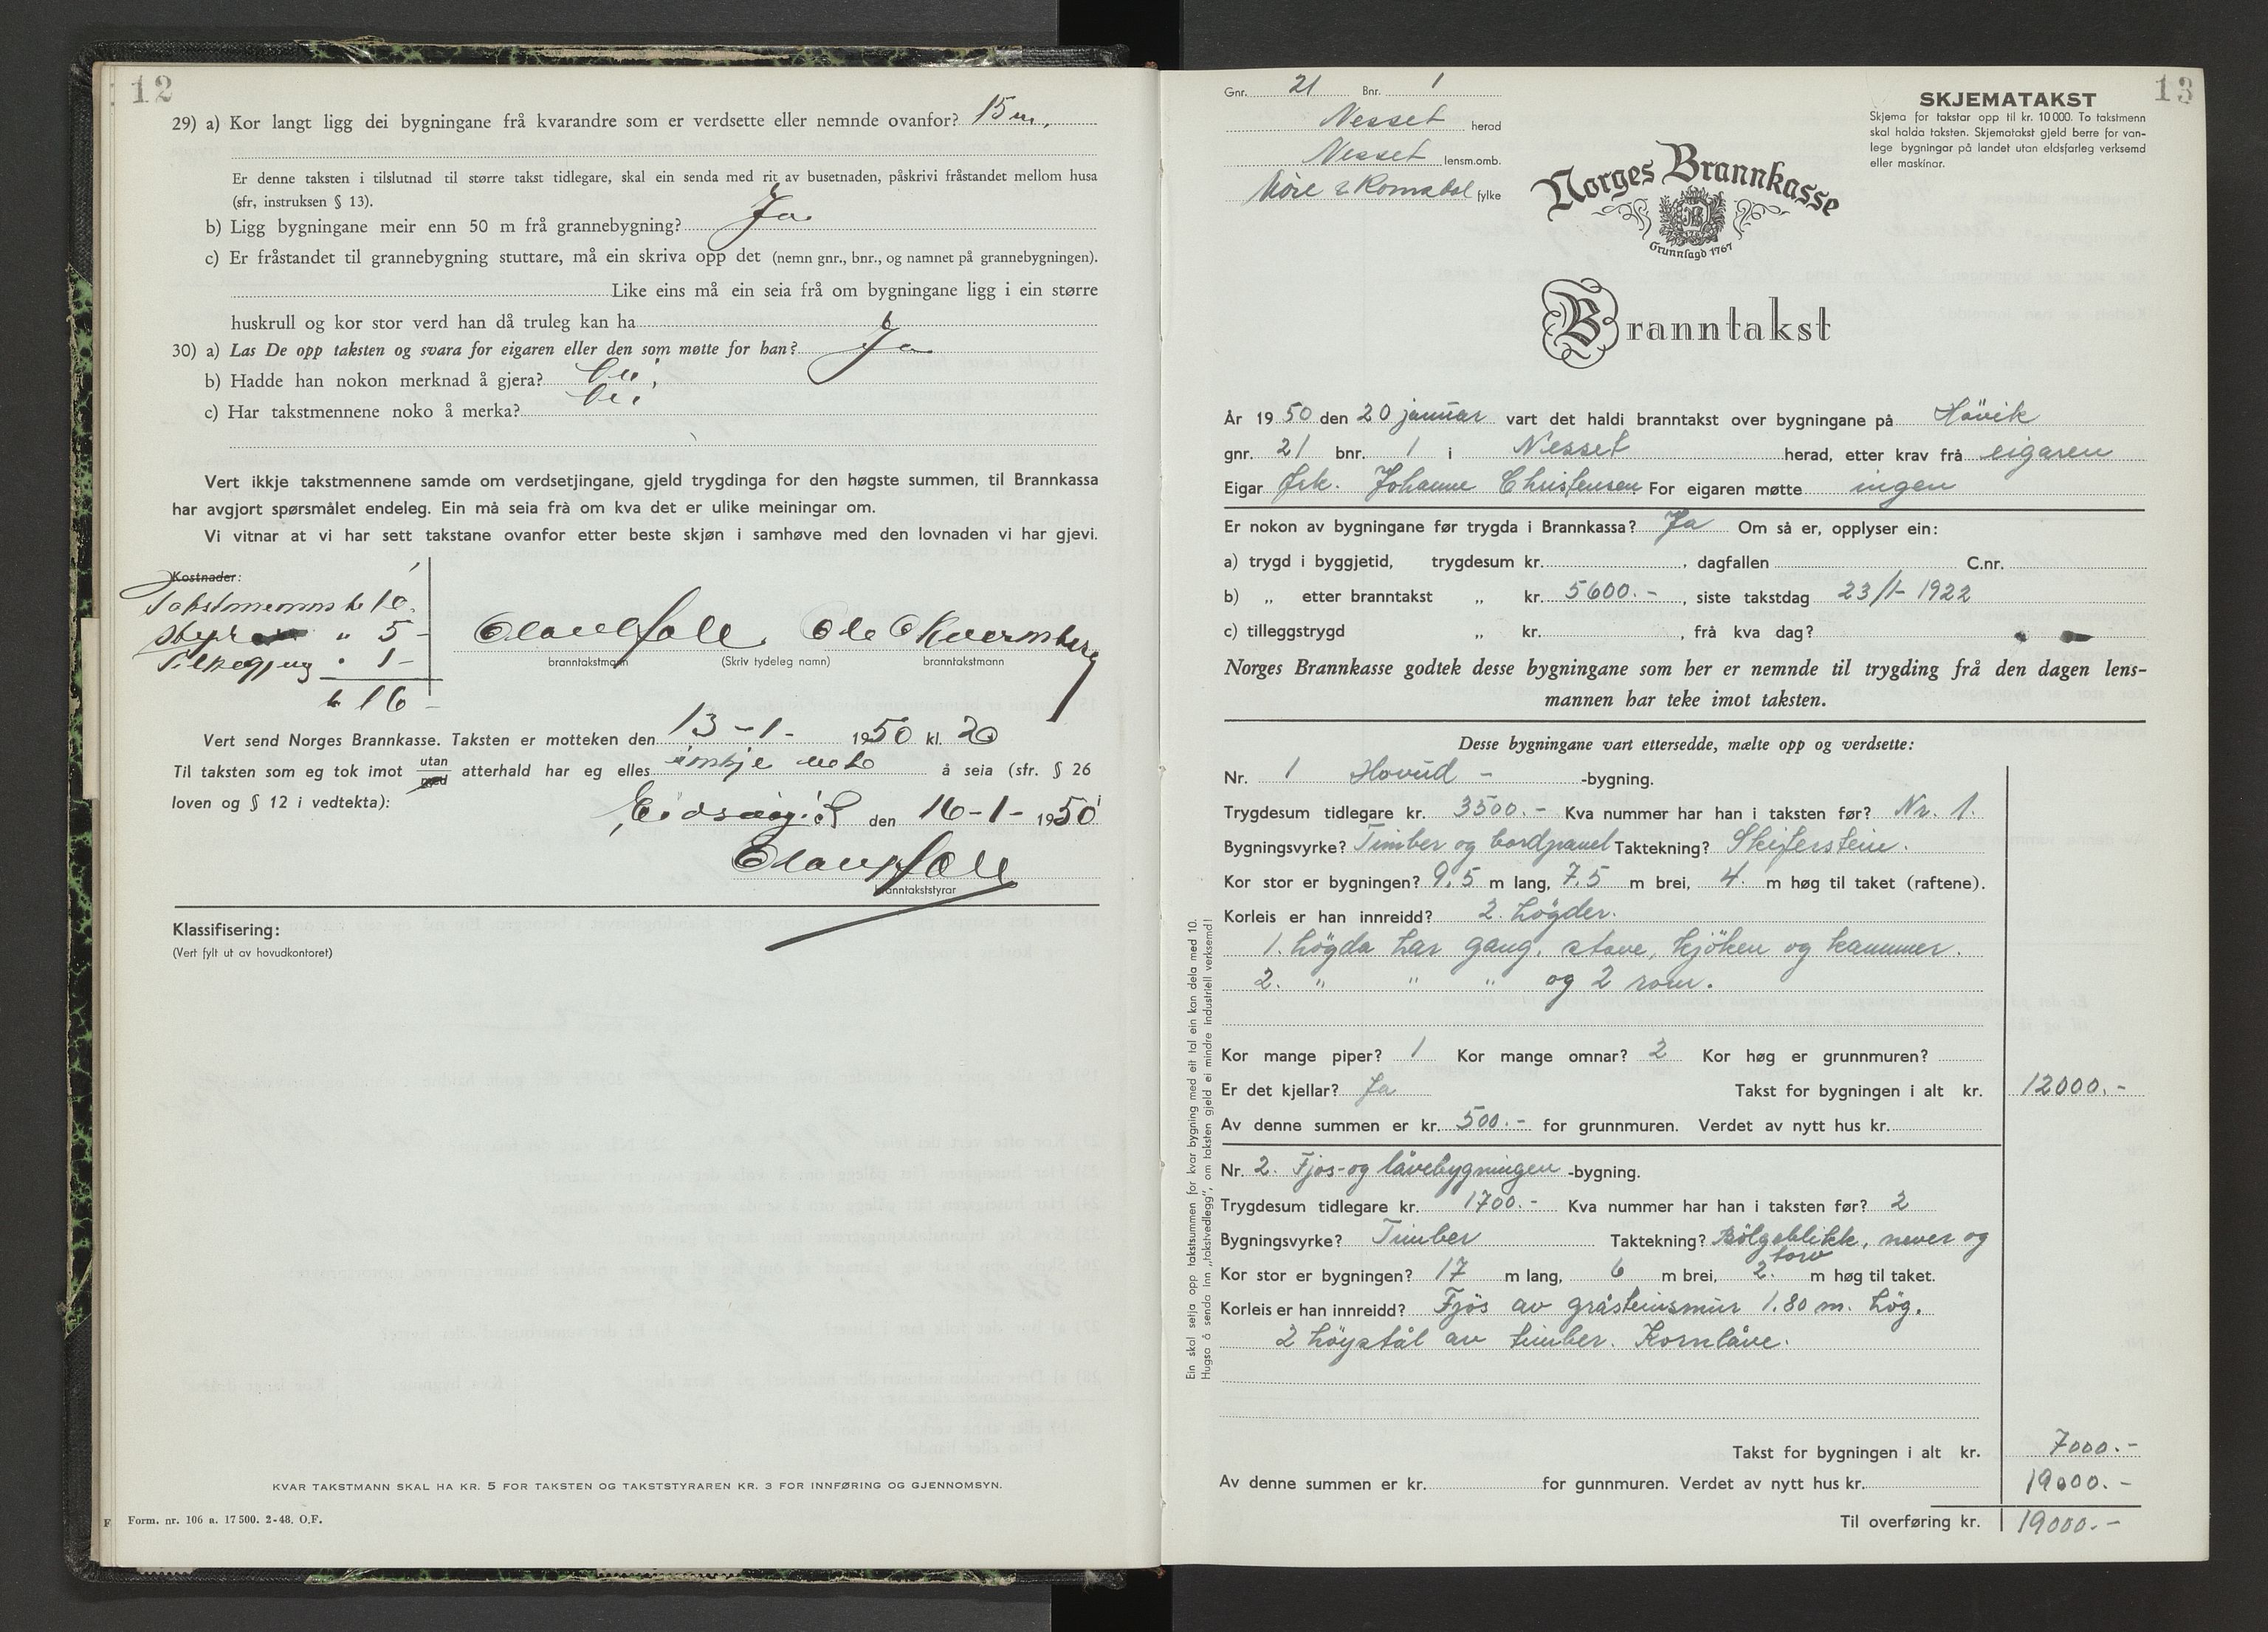 12
29) a) Kor langt ligg dei bygningane frå kvarandre som er verdsette eller nemnde ovanfor? 15 m.
Er denne taksten i tilslutnad til større takst tidlegare, skal ein senda med rit av busetnaden, påskrivi fråstandet mellom husa
(sfr, instruksen § 13).
b) Ligg bygningane meir enn 50 m frå grannebygning? Ja.
c) Er fråstandet til grannebygning stuttare, må ein skriva opp det (nemn gnr., bnr., og namnet på grannebygningen).
Like eins må ein seia frå om bygningane ligg i ein større
huskrull og kor stor verd han då truleg kan ha
30) a) Las De opp taksten og svara for eigaren eller den som møtte for han? Ja
b) Hadde han nokon merknad å gjera? Nei.
c) Har takstmennene noko å merka? Nei
Vert ikkje takstmennene samde om verdsetjingane, gjeld trygdinga for den høgste summen, til Brannkassa
har avgjort spørsmålet endeleg. Ein må seia frå om kva det er ulike meiningar om.
Vi vitnar at vi har sett takstane ovanfor etter beste skjøn i samhøve med den lovnaden vi har gjevi.
Kostnader:
Takstmenns kr 10.
Styr " 5 -
1 -
kr 16 -
Olav Sole. Ole O Kvernberg
branntakstmann (Skriv tydeleg namn) branntakstmann
Vert send Norges Brannkasse. Taksten er motteken den 13 - 1 - 1950 kl. 20
Til taksten som eg tok imot utan/med atterhald har eg elles inkje meto å seia (sfr. § 26
loven og § 12 i vedtekta):
Eidsvåg. d den 16 - 1 - 1950
Olav Sole
branntakststyrar
Klassifisering:
(Vert fylt ut av hovudkontoret)
KVAR TAKSTMANN SKAL HA KR. 5 FOR TAKSTEN OG TAKSTSTYRAREN KR. 3 FOR INNFØRING OG GJENNOMSYN.
F Form. nr. 106 a. 17 500. 2-48. O.F.
13
Gnr. 21 Bnr. 1
Nesset herad
Nesset lensm.omb.
Möre & Romsdal fylke
SKJEMATAKST
Skjema for takstar opp til kr. 10 000. To takstmenn
skal halda taksten. Skjematakst gjeld berre for van-
lege bygningar på landet utan eldsfarleg verksemd
eller maskinar.
Norges Brannkasse
Grunnlagd 1767
Branntakst
År 1950 den 20 januar vart det haldi branntakst over bygningane på Hövik
gnr. 21 bnr. 1 i Nesset herad, etter krav frå eigaren
Eigar Frk. Johanne Christensen For eigaren møtte ingen
Er nokon av bygningane før trygda i Brannkassa? Ja Om så er, opplyser ein:
a) trygd i byggjetid, trygdesum kr. , dagfallen C.nr.
b) „ etter branntakst „ kr. 5600.- , siste takstdag 23/1- 1922
c) tilleggstrygd „ kr. , frå kva dag?
Norges Brannkasse godtek desse bygningane som her er nemnde til trygding frå den dagen lens-
mannen har teke imot taksten.
Desse bygningane vart ettersedde, mælte opp og verdsette:
Nr. 1 Hovud - -bygning.
Trygdesum tidlegare kr. 3500.- Kva nummer har han i taksten før? Nr. 1.
Bygningsvyrke? Timber og bordpanel Taktekning? Skiferstein.
Kor stor er bygningen? 9.5 m lang, 7.5 m brei, 4. m høg til taket (raftene).
Korleis er han innreidd? 2. högder.
1. högda har gang, stove, kjöken og kammer.
2. " " " og 2 rom.
Kor mange piper? 1 Kor mange omnar? 2 Kor høg er grunnmuren?
Er det kjellar? Ja Takst for bygningen i alt kr. 12000.-
Av denne summen er kr. 500.- for grunnmuren. Verdet av nytt hus kr.
Nr. 2. Fjos- og låvebygningen -bygning.
Trygdesum tidlegare kr. 1700.- Kva nummer har han i taksten før? 2
Bygningsvyrke? Timber Taktekning? Bölgeblikk, never og
torv
Kor stor er bygningen? 17 m lang, 6 m brei, 2. m høg til taket.
Korleis er han innreidd? Fjös av gråsteinsmur 1.80 m. hög.
2 höystål av timber. Kornlåve.
Takst for bygningen i alt kr. 7000.-
Av denne summen er kr. for gunnmuren. Verdet av nytt hus kr. 19000.-
Til overføring kr. 19000.-
Ein skal setja opp takstsummen for kvar bygning med eit tal ein kan dela med 10.
Hugsa å senda inn „takstvedlegg”, om taksten gjeld ei mindre industriell verksemd!